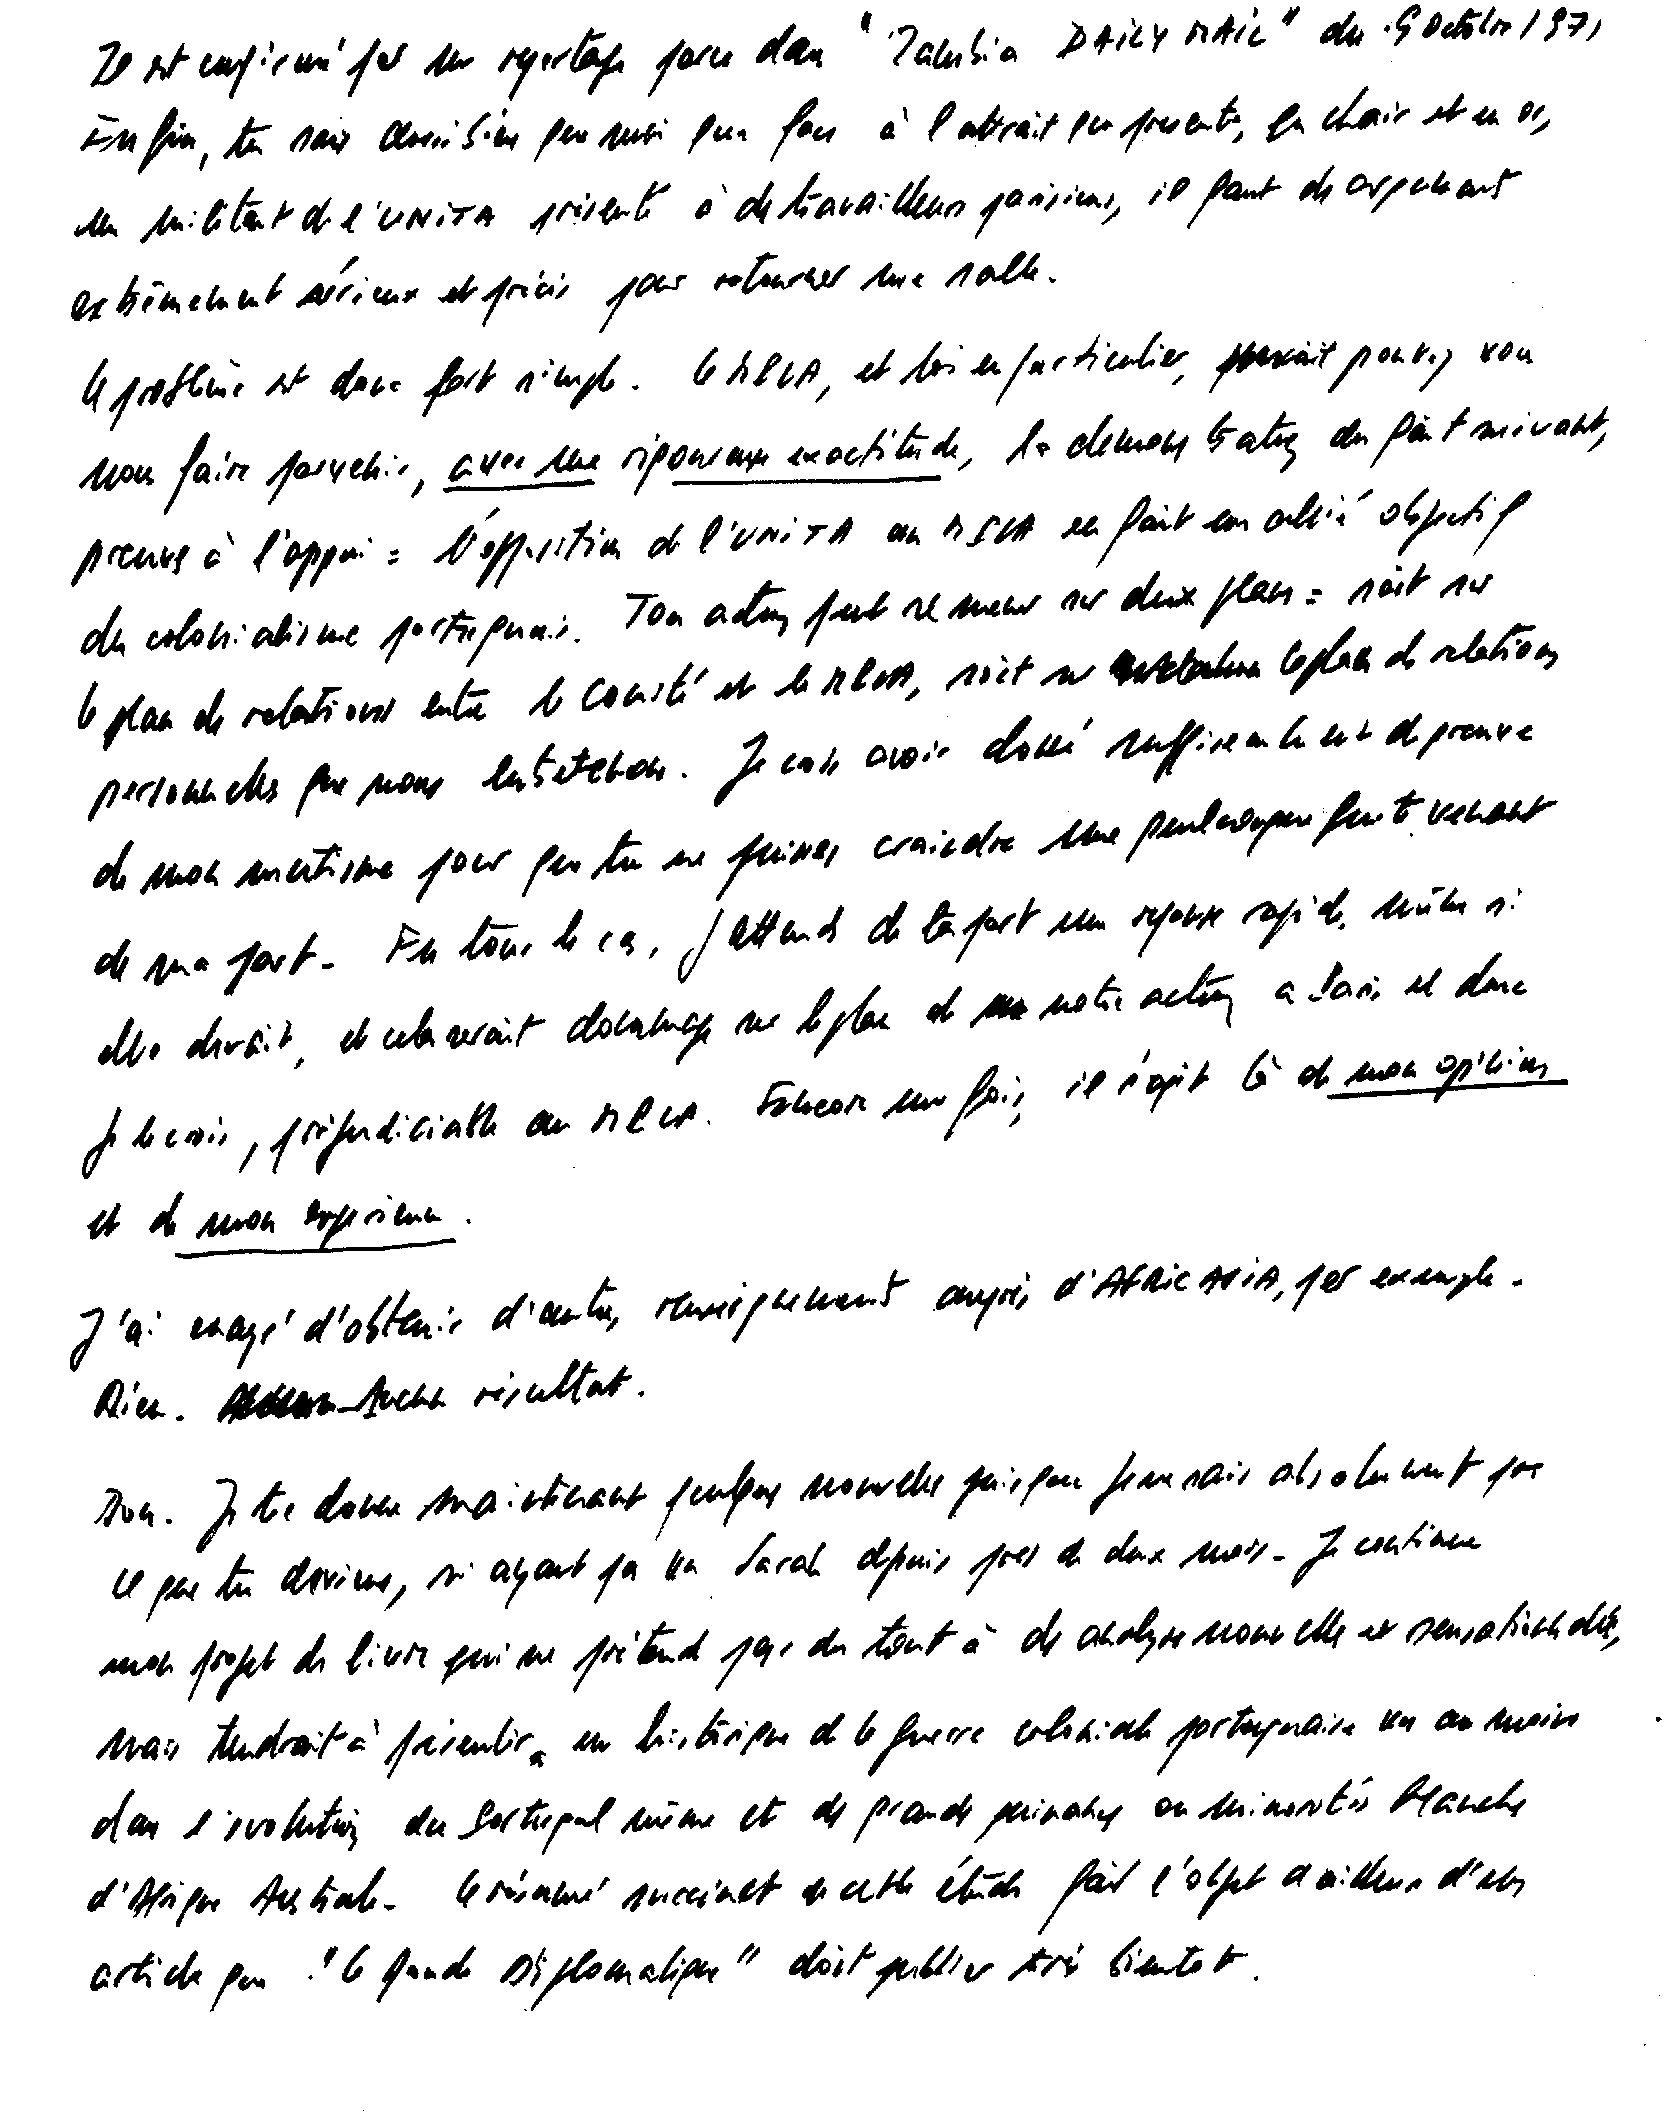 Il est confirmé par un reportage paru dans "Zambia DAILY MAIL" du 9 Octobre 1971
Enfin, tu sais aussi bien que moi que face à l'attrait que présente, en chair et en os,
un militant de l'UNITA présenté à des travailleurs parisiens, il faut des arguments
extrêmement sérieux et précis pour retourner une salle.
Le problème est donc fort simple. Le MPLA, et toi en particulier, pouvez vous
nous faire parvenir, avec une rigoureuse exactitude, la démonstration du fait suivant,
preuves à l'appui : l'opposition de l'UNITA au MPLA en fait un allié objectif
du colonialisme portugais. Ton action peut se mener sur deux plans : soit sur
le plan des relations entre le Comité et le MPLA, soit sur le plan des relations
personnelles que nous entretenons. Je crois avoir donné suffisamment de preuve
de mon mutisme pour que tu ne puisses craindre une quelconque fuite venant
de ma part. En tous les cas, j'attends de ta part une réponse rapide, même si
elle devait, et cela serait dommage sur le plan de notre action à Paris et donc
je le crois, préjudiciable au MPLA. Encore une fois, il s'agit là de mon opinion
et de mon expérience.
J'ai essayé d'obtenir d'autres renseignements auprès d'AFRICASIA, par exemple.
Rien. Aucun résultat.
Bon. Je te donne maintenant quelques nouvelles puisque je ne sais absolument pas
ce que tu deviens, n'ayant pas vu Sarah depuis près de deux mois. Je continue
mon projet de livre qui ne prétend pas du tout à des analyses nouvelles et sensationnelles,
mais tendrait à présenter un historique de la guerre coloniale portugaise vu au moins
dans l'évolution du Portugal même et des grandes puissances ou minorités blanches
d'Afrique Australe. Le résumé succinct de cette étude fait l'objet d'ailleurs d'un
article que "le Monde Diplomatique" doit publier très bientôt.